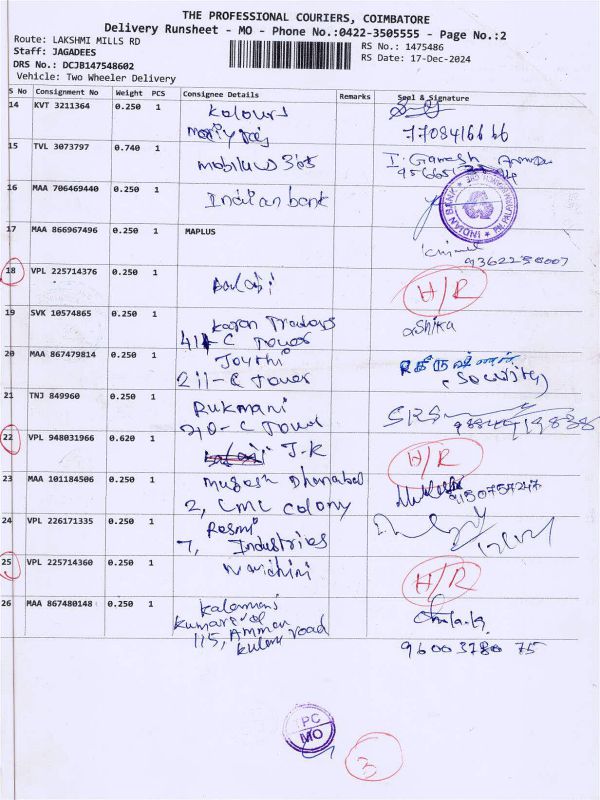 THE PROFESSIONAL COURIERS, COIMBATORE
Delivery Runsheet - MO - Phone No.:0422-3505555 - Page No.:2
Route: LAKSHMI MILLS RD
Staff: JAGADEES
DRS No.: DCJB147548602
Vehicle: Two Wheeler Delivery
RS No.: 1475486
RS Date: 17-Dec-2024
S No Consignment No Weight PCS Consignee Details Remarks Seal & Signature
14 KVT 3211364 0.250 1 Kolours
7708416666
15 TVL 3073797 0.740 1 I. Ganesh
16 MAA 706469440 0.250 1 Indian bank
INDIAN BANK
17 MAA 866967496 0.250 1 MAPLUS
9362250007
18 VPL 225714376 0.250 1 Balaji H/R
19 SVK 10574865 0.250 1 Karan Traders
411-C Tower
ashika
20 MAA 867479814 0.250 1 Joythi
211-C Tower
(Security)
21 TNJ 849960 0.250 1 Rukmani
210-C Tower
SRS
22 VPL 948031966 0.620 1 J-K H/R
23 MAA 101184506 0.250 1 Mugesh Dhanabal
2, CMC colony
9150757247
24 VPL 226171335 0.250 1 Rasmi
7, Industries
25 VPL 225714360 0.250 1 H/R
26 MAA 867480148 0.250 1 Kalamani
115, Amman
road
9600378075
PC
MO
3